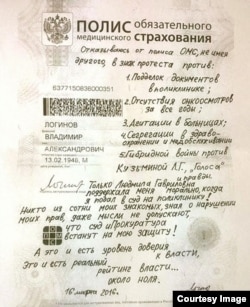 ПОЛИС ОБЯЗАТЕЛЬНОГО
МЕДИЦИНСКОГО СТРАХОВАНИЯ
Отказываюсь от полиса ОМС, не имея
другого, в знак протеста против:
6377150836000351
1. Подделок документов
в поликлинике;
2. Отсутствия онкоосмотров
за все годы;
ЛОГИНОВ
ВЛАДИМИР
АЛЕКСАНДРОВИЧ
13.02.1946, М
3. Агитации в больницах;
4. Сегрегации в здраво-
охранении и медобслуживании
5. Гибридной войны против
Кузьминой А.Г., "Голоса"
и правды.
Только Людмила Гавриловна
поддержала меня морально, когда
я подал в суд на поликлинику!
Никто из сотни моих знакомых, зная о нарушении
моих прав, даже мысли не допускают,
что суд и прокуратура
встанут на мою защиту!
А это и есть уровень доверия
к власти,
Это и есть реальный
рейтинг власти...
около ноля.
16 марта 2016г.
Courtesy Image